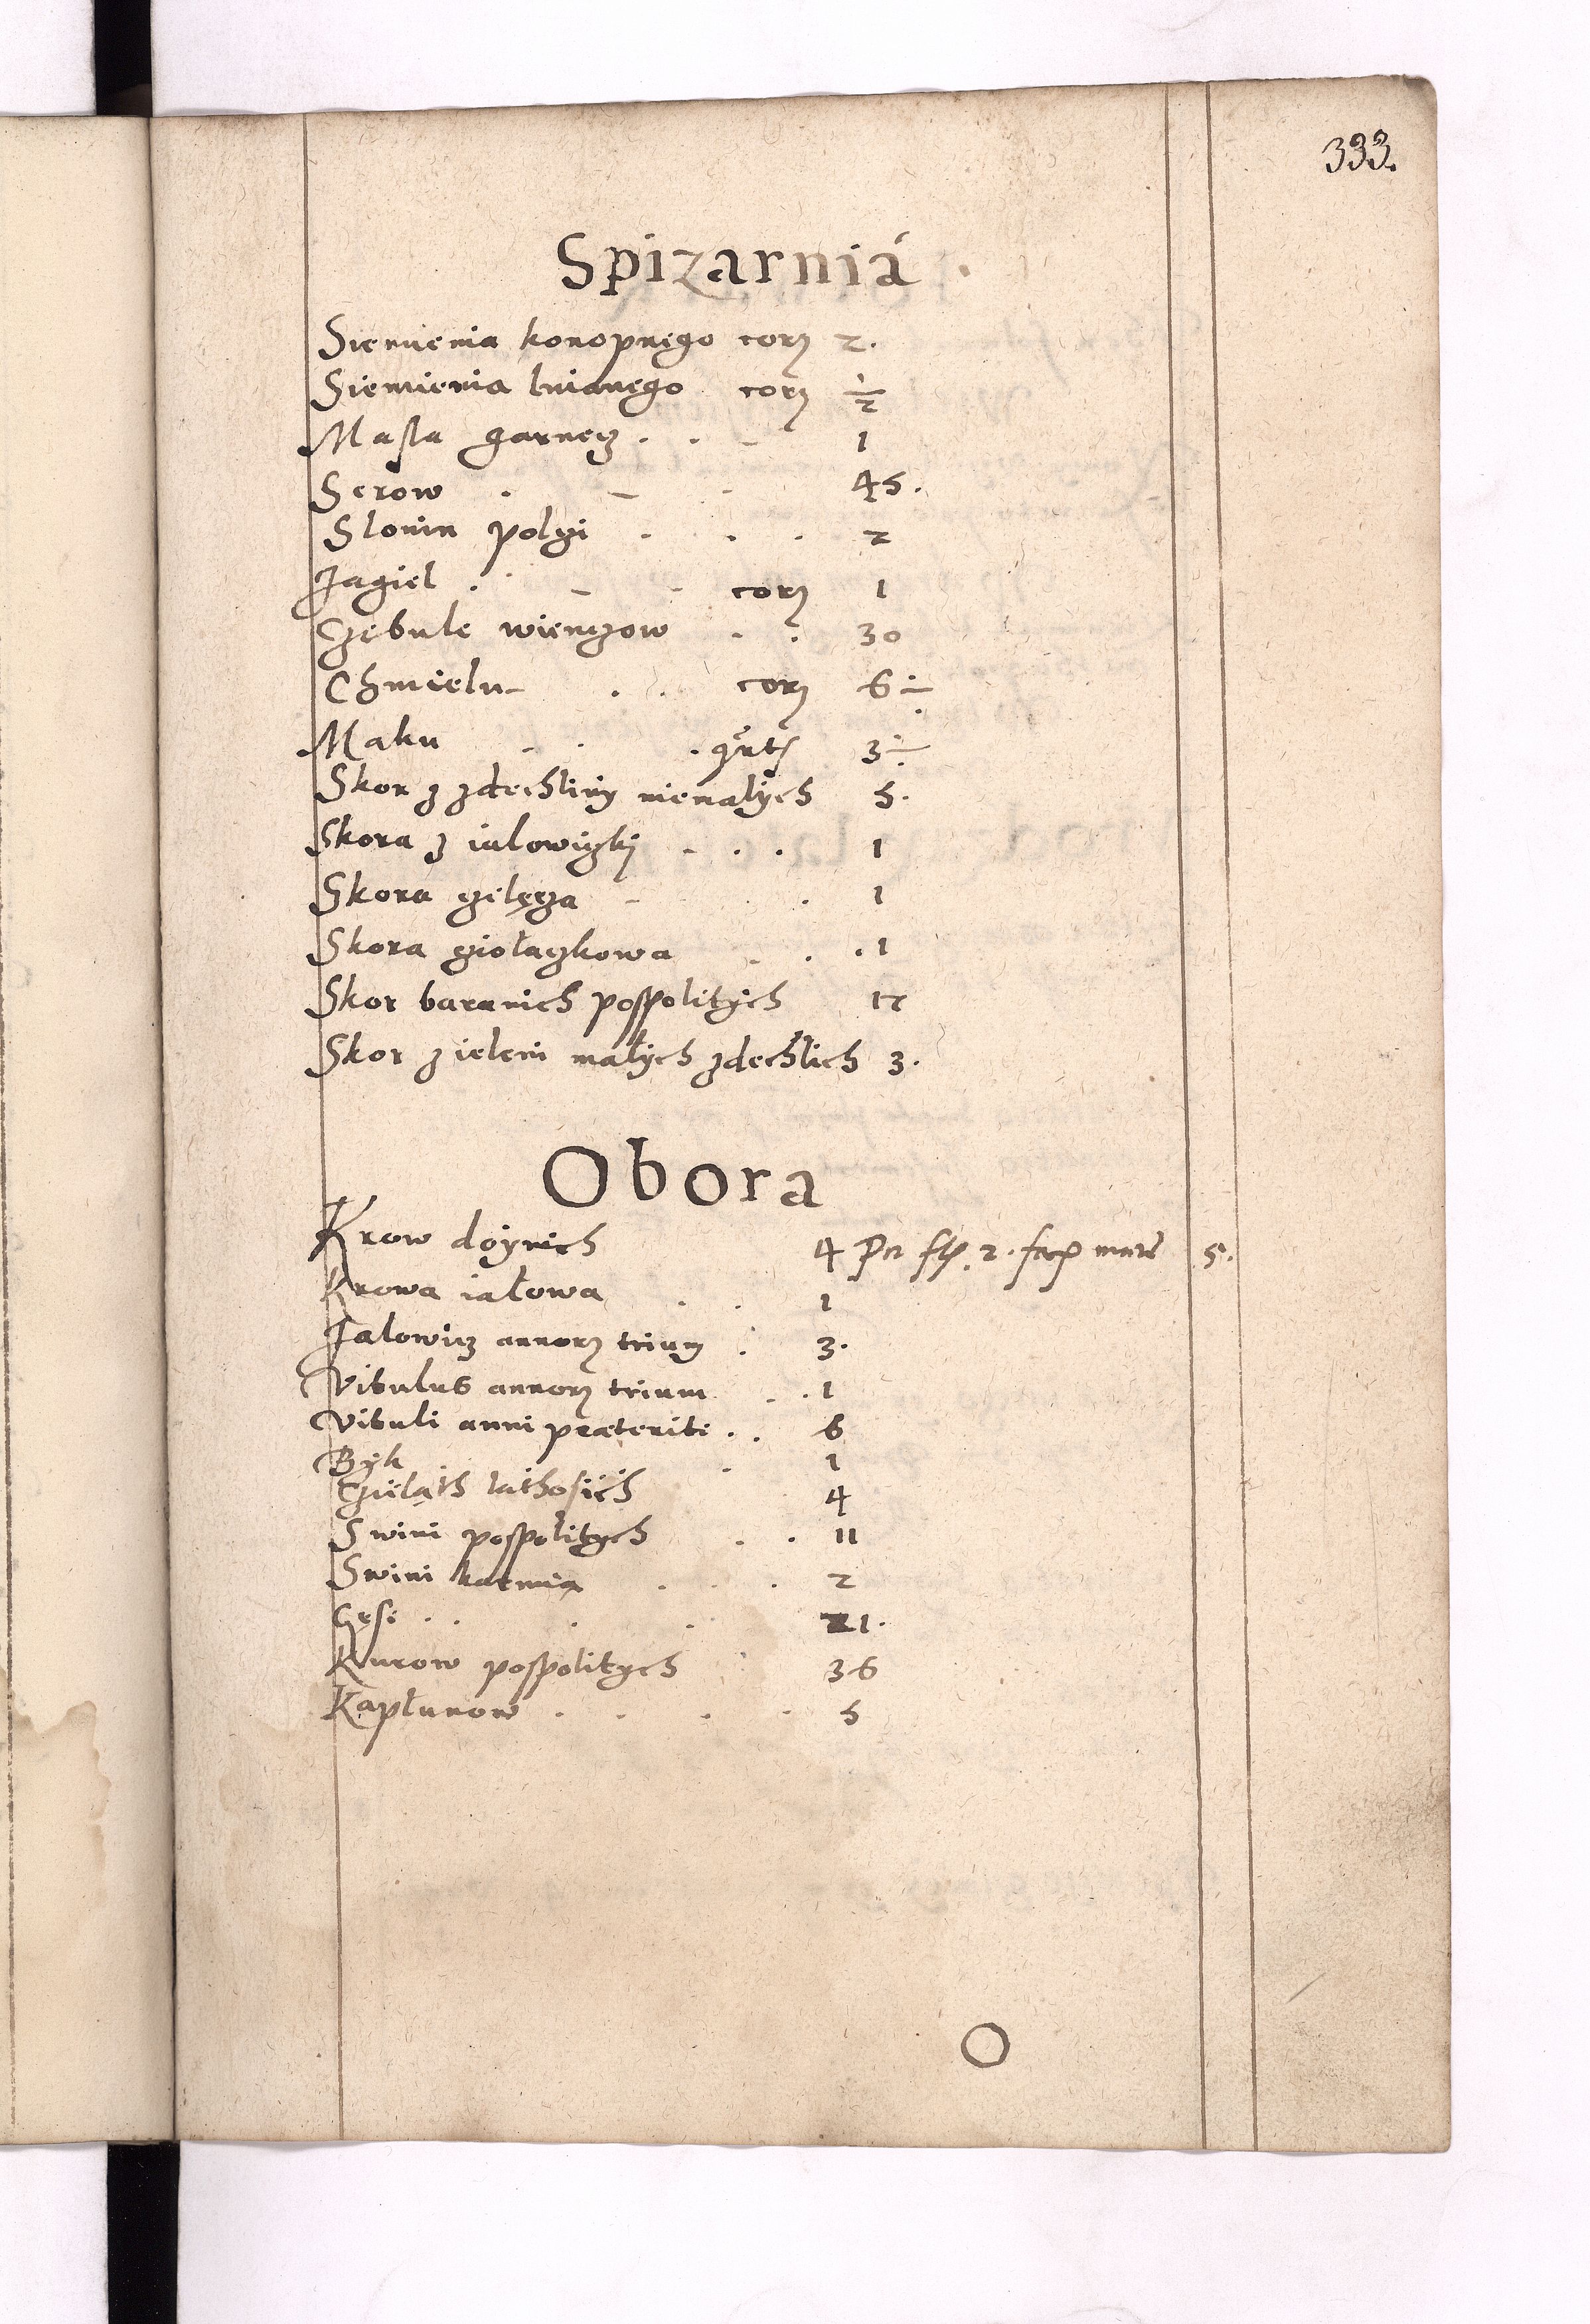 333.
Spizarniá
Siemienia konopnęgo corz 2.
Siemienia lnianęgo corz 1/2
Masla garnecz . . - 1
Serow . - . 45.
Slonin polczi . . . 2
Jagiel . . - - corz 1
Czebule wienczow . . 30
Chmielu - . . corz 6 ÷
Maku - . . qrts 3 ÷
Skor z zdechliny niemalÿch 5.
Skora z ialowiczkj - . . 1
Skora czelęcza - . . 1
Skora cziołaczkowa . . . 1
Skor baranich pospolitych 12
Skor z ieleni małÿch zdechlich 3.
Obora
Krow doÿnich 4 2. 5.
Krowa iałowa . . 1
Jalowicz annorz trium . 3.
Vitulus annorz trium . . 1
Vituli anni praeteriti . . 6
Bÿk . 1
Czieląth lathosiich 4
Swini pospolitych . . 11
Swini karmia . . . 2
Gęsi . . . . 21.
Kurow pospolitych 36
Kapłunow . . . . 5